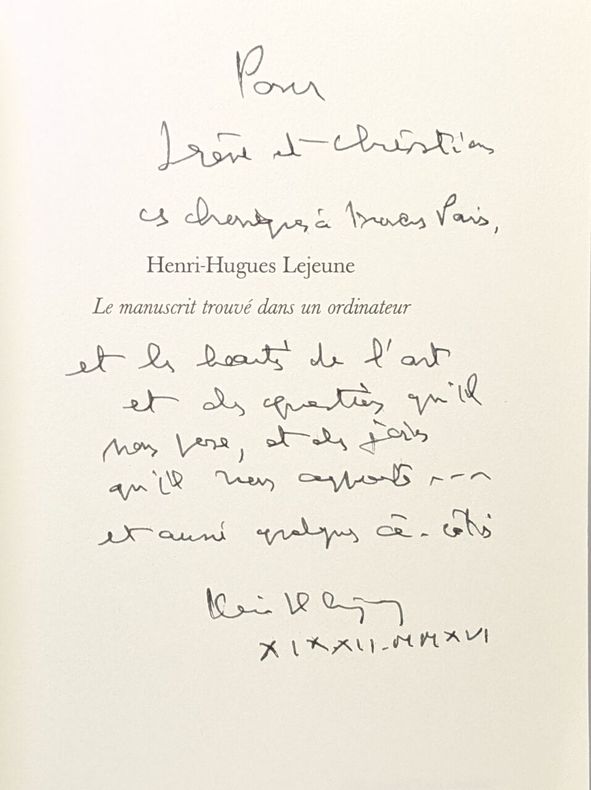 Pour
Irène et Christian
ces chroniques à travers Paris,
Henri-Hugues Lejeune
Le manuscrit trouvé dans un ordinateur
et la beauté de l'art
et des questions qu'il
nous pose, et des joies
qu'il nous apporte ---
et aussi quelques à-côtés
XIXXII-MMXVI